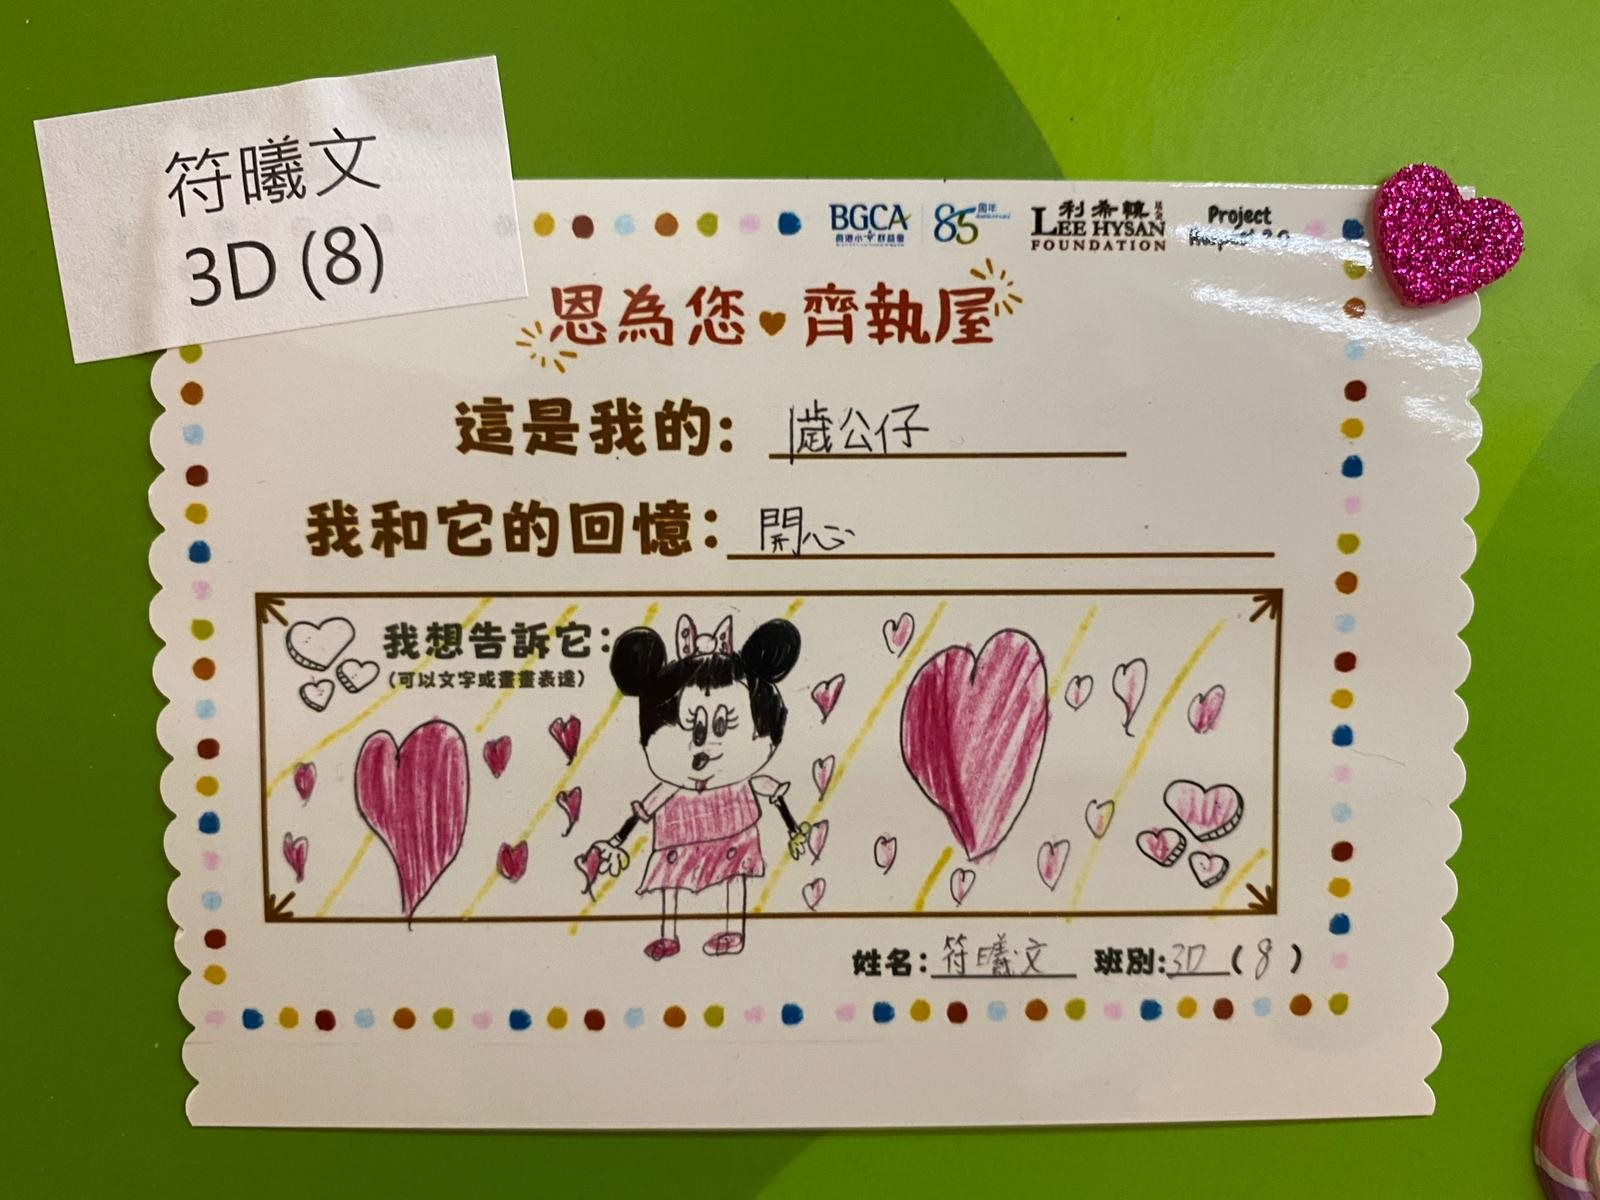 符曦文
3D (8)
BGCA
85
周年
利希慎
基金
LEE HYSAN
FOUNDATION
Project
恩為您齊執屋
這是我的：1歲公仔
我和它的回憶：開心
我想告訴它：
（可以文字或畫畫表達）
姓名：符曦文 班別：3D（8）